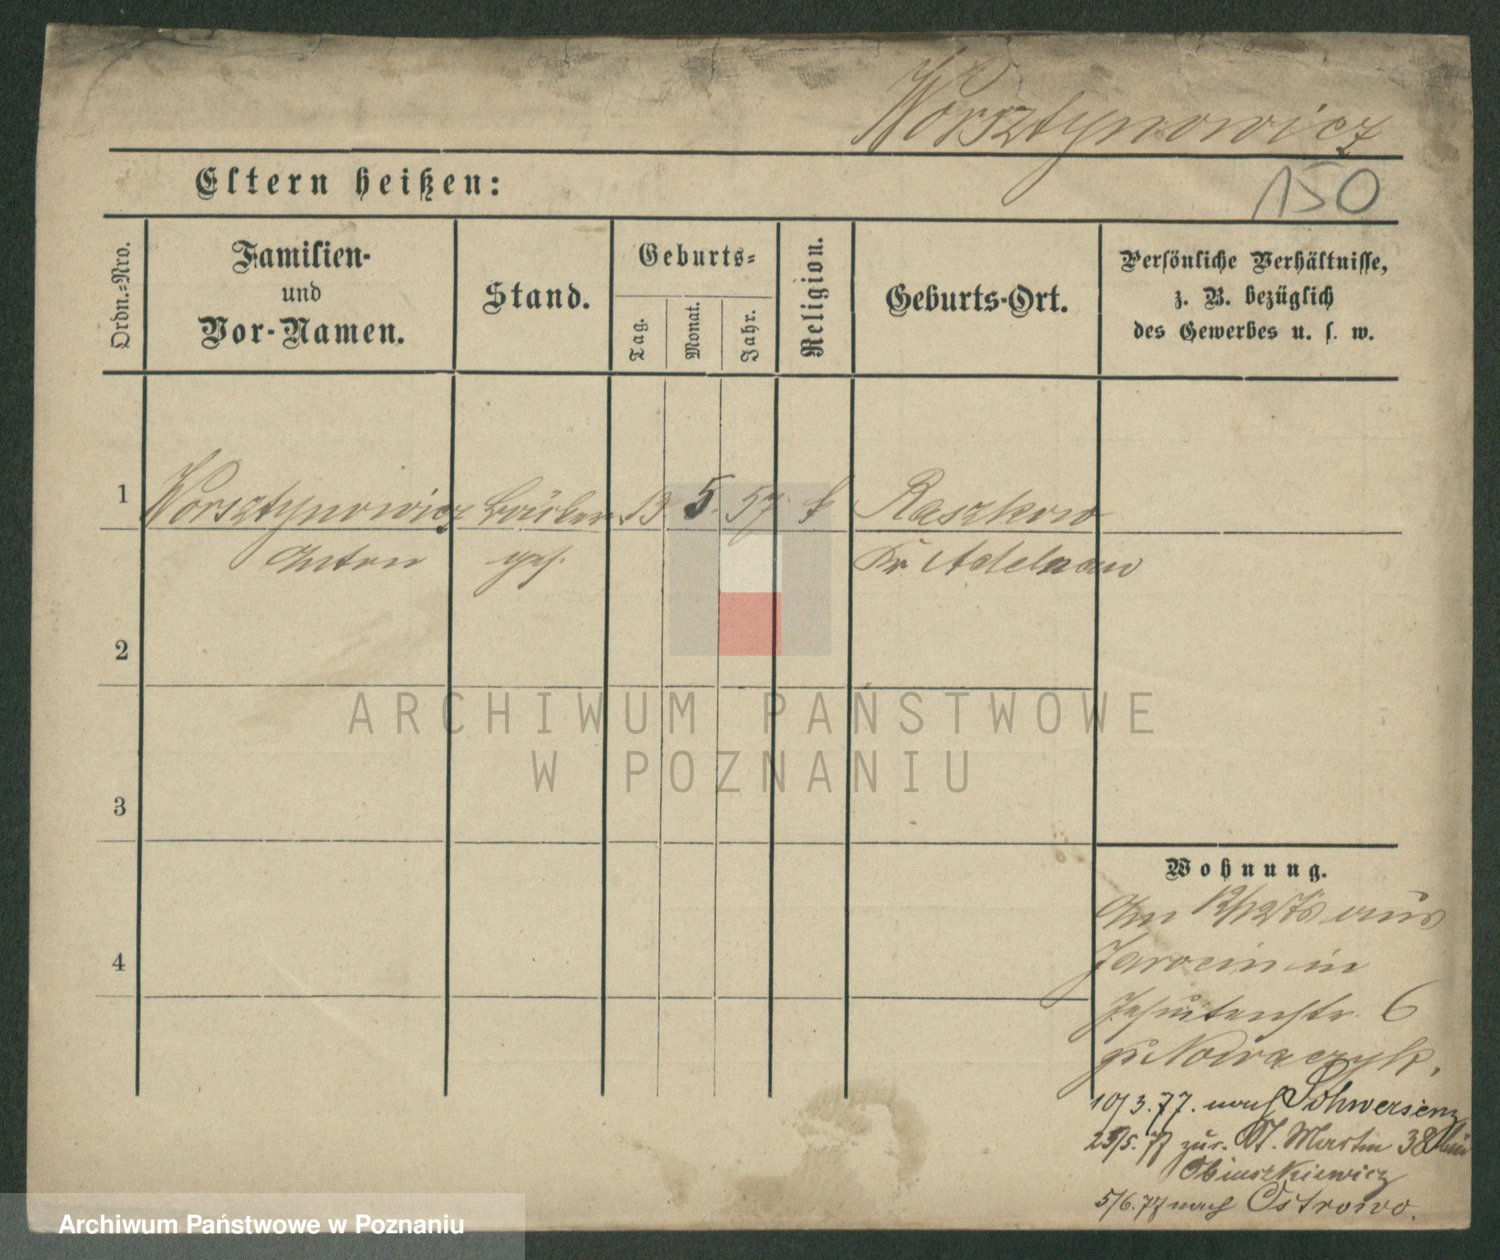 Worsztynowicz
Eltern heißen:
150
Ordn.-Nro.
Familien-
und
Vor-Namen.
Stand.
Geburts-
Tag.
Monat.
Jahr.
Religion.
Geburts-Ort.
Persönliche Verhältnisse,
z. B. bezüglich
des Gewerbes u. s. w.
1
Worsztynowicz
Anton
ges.
13
5.
57
k
Raszkow
Kr. Adelnau
2
3
4
Wohnung.
Am 12/12 76 aus
Jarocin in
Jesuitenstr. 6
Nowaczyk,
10/3.77. nach Schwersenz
25/5.77 zur. St. Martin 38 bei
5/6.77 nach Ostrowo.
ARCHIWUM PAŃSTWOWE
W POZNANIU
Archiwum Państwowe w Poznaniu